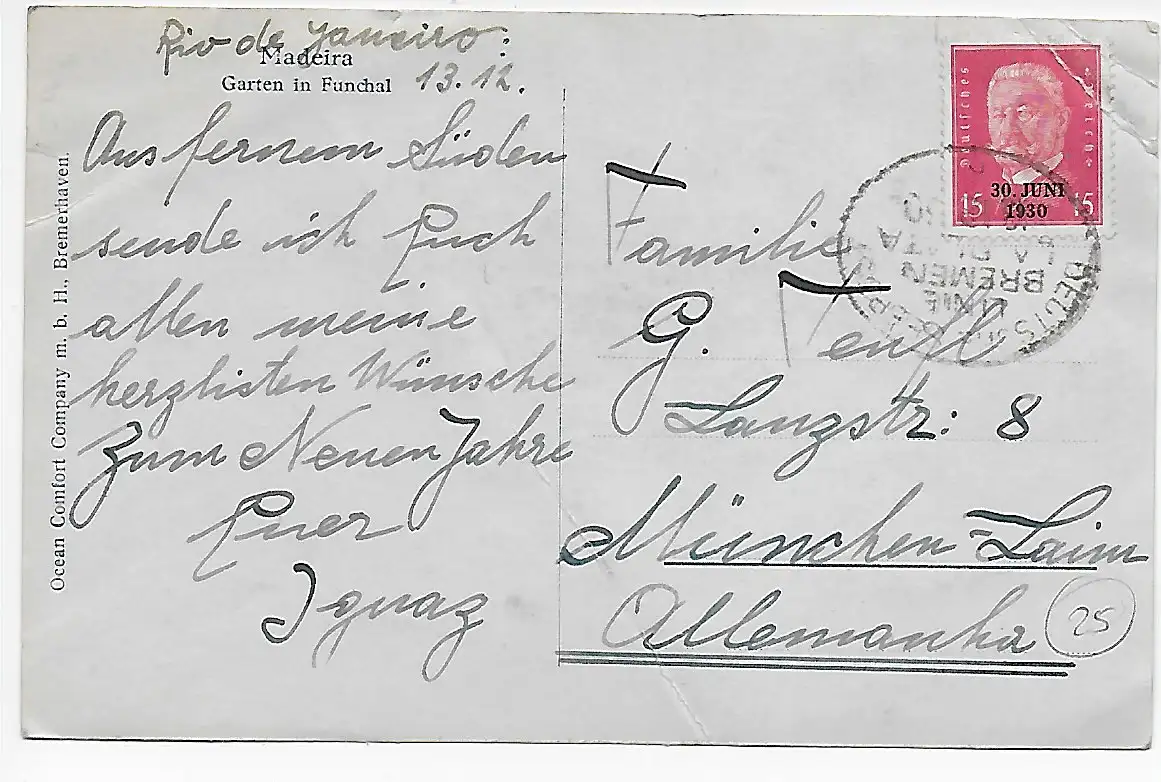 Rio de Janeiro:
13.12.
Madeira
Garten in Funchal
Aus fernem Süden
sende ich Euch
allen meine
herzlisten Wünsche
zum Neuen Jahre
Euer
Ignaz
Ocean Comfort Company m. b. H., Bremerhaven.
Deutsches Reich
30. JUNI
1930
15 15
BREMEN
LA PLATA
Familie
G.
Lanzstr: 8
München-Laim
Allemanha
25